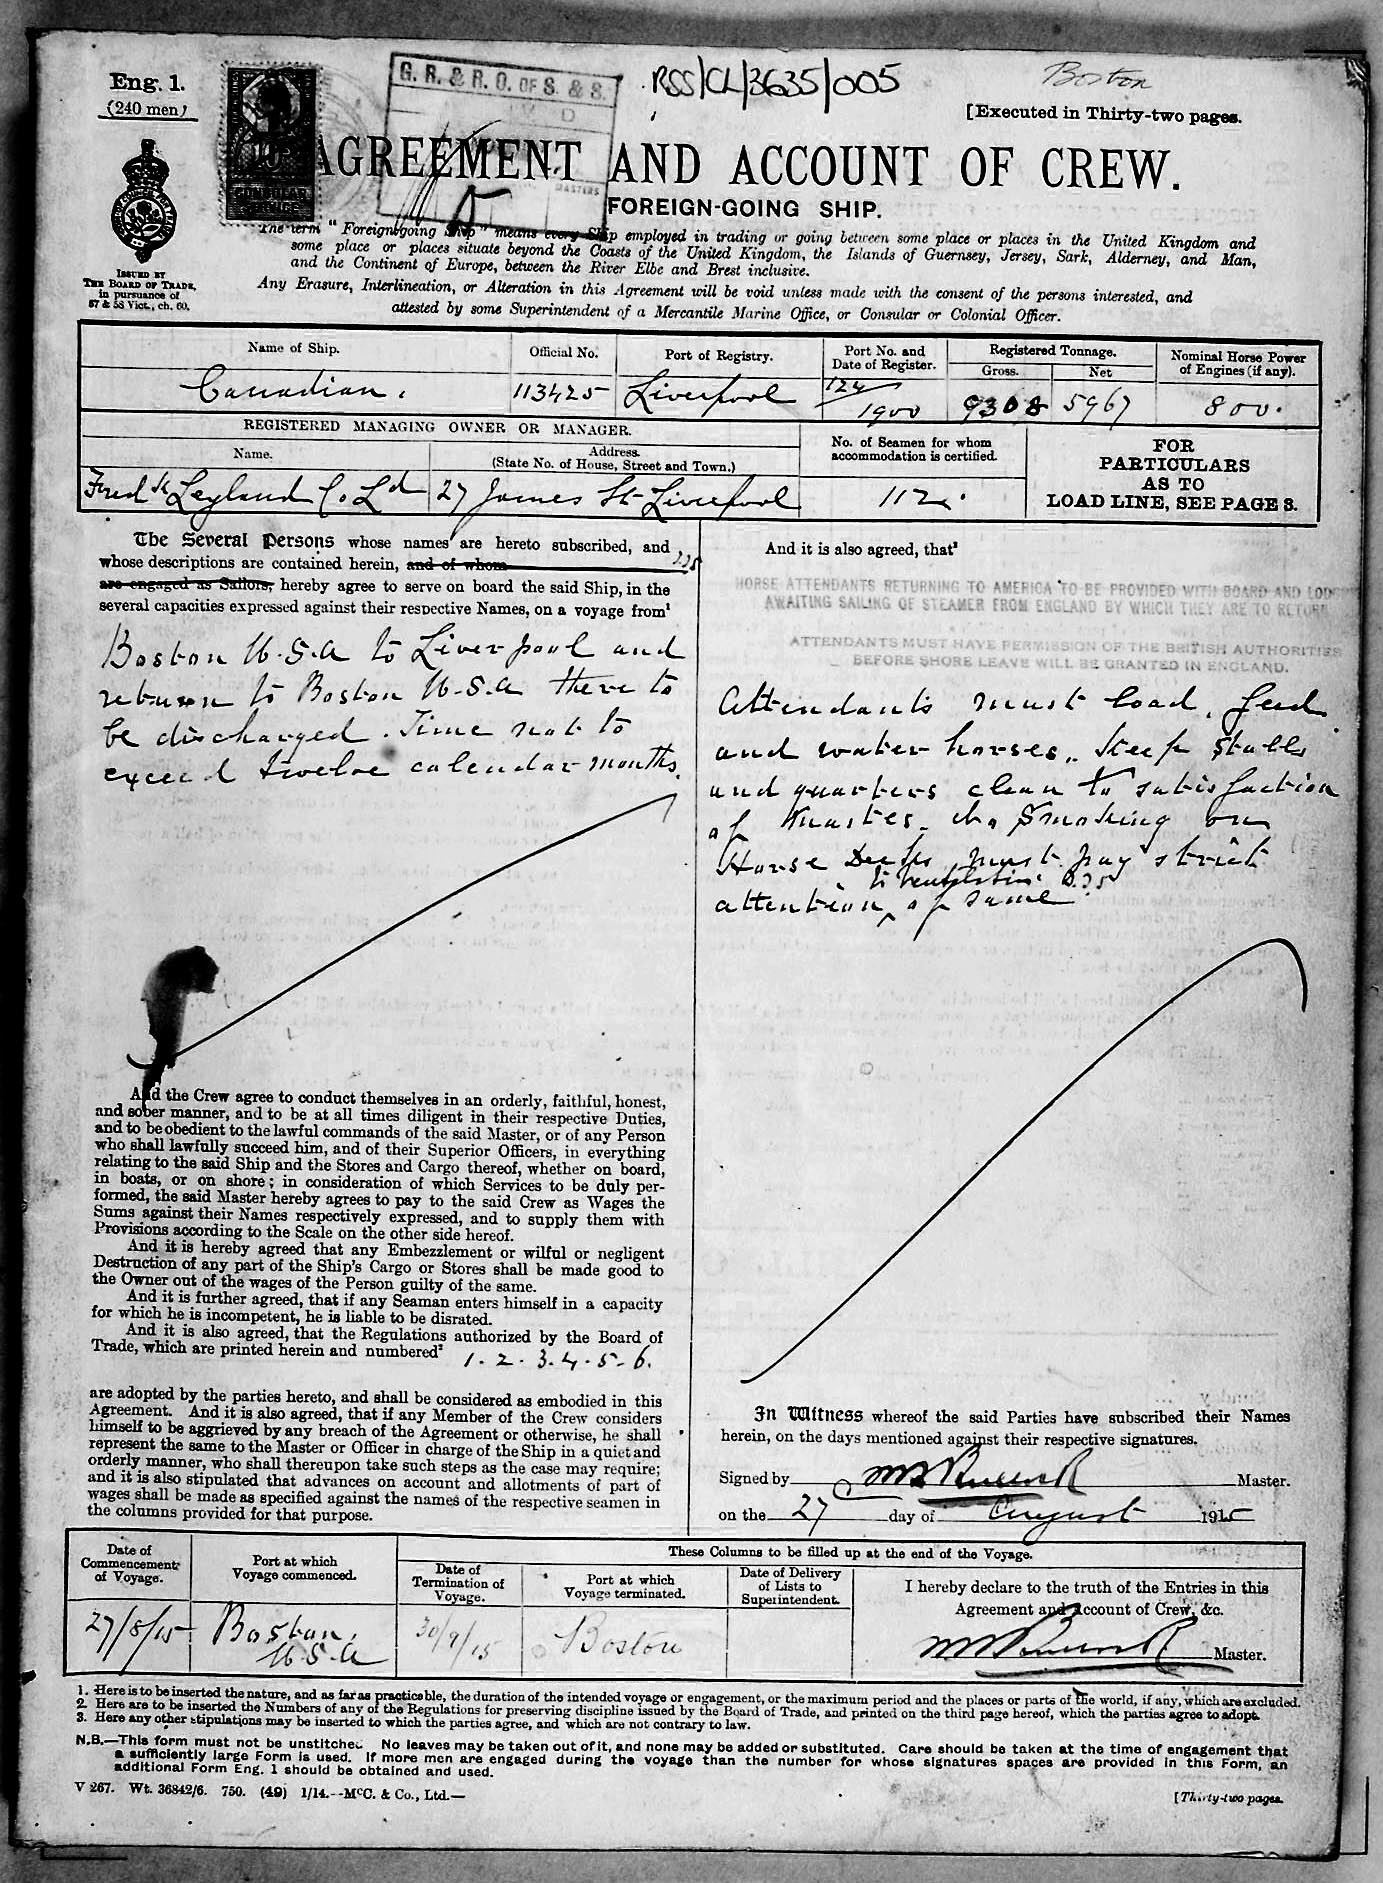 Eng. 1.
(240 men)
G. R. & R. O. OF S. & S.
RSS/CL/3635/005
Boston
[Executed in Thirty-two pages.
AGREEMENT AND ACCOUNT OF CREW.
FOREIGN-GOING SHIP.
ISSUED BY
THE BOARD OF TRADE,
in pursuance of
57 & 58 Vict., ch. 60.
The term "Foreign-going Ship" means every Ship employed in trading or going between some place or places in the United Kingdom and
some place or places situate beyond the Coasts of the United Kingdom, the Islands of Guernsey, Jersey, Sark, Alderney, and Man,
and the Continent of Europe, between the River Elbe and Brest inclusive.
Any Erasure, Interlineation, or Alteration in this Agreement will be void unless made with the consent of the persons interested, and
attested by some Superintendent of a Mercantile Marine Office, or Consular or Colonial Officer.
Name of Ship. Official No. Port of Registry. Port No. and Date of Register. Registered Tonnage. Gross. Net Nominal Horse Power of Engines (if any).
Canadian. 113425 Liverpool 124/1900 9308 5967 800.
REGISTERED MANAGING OWNER OR MANAGER.
Name. Address. (State No. of House, Street and Town.)
No. of Seamen for whom accommodation is certified.
FOR PARTICULARS AS TO LOAD LINE, SEE PAGE 3.
Fred k Leyland Co Ld 27 James St Liverpool 112.
The Several Persons whose names are hereto subscribed, and
whose descriptions are contained herein, and of whom
are engaged as Sailors, hereby agree to serve on board the said Ship, in the
several capacities expressed against their respective Names, on a voyage from¹
Boston U.S.A to Liverpool and
return to Boston U.S.A there to
be discharged. Time not to
exceed twelve calendar months.
And the Crew agree to conduct themselves in an orderly, faithful, honest,
and sober manner, and to be at all times diligent in their respective Duties,
and to be obedient to the lawful commands of the said Master, or of any Person
who shall lawfully succeed him, and of their Superior Officers, in everything
relating to the said Ship and the Stores and Cargo thereof, whether on board,
in boats, or on shore; in consideration of which Services to be duly per-
formed, the said Master hereby agrees to pay to the said Crew as Wages the
Sums against their Names respectively expressed, and to supply them with
Provisions according to the Scale on the other side hereof.
And it is hereby agreed that any Embezzlement or wilful or negligent
Destruction of any part of the Ship's Cargo or Stores shall be made good to
the Owner out of the wages of the Person guilty of the same.
And it is further agreed, that if any Seaman enters himself in a capacity
for which he is incompetent, he is liable to be disrated.
And it is also agreed, that the Regulations authorized by the Board of
Trade, which are printed herein and numbered² 1. 2. 3. 4. 5. 6.
are adopted by the parties hereto, and shall be considered as embodied in this
Agreement. And it is also agreed, that if any Member of the Crew considers
himself to be aggrieved by any breach of the Agreement or otherwise, he shall
represent the same to the Master or Officer in charge of the Ship in a quiet and
orderly manner, who shall thereupon take such steps as the case may require;
and it is also stipulated that advances on account and allotments of part of
wages shall be made as specified against the names of the respective seamen in
the columns provided for that purpose.
And it is also agreed, that³
HORSE ATTENDANTS RETURNING TO AMERICA TO BE PROVIDED WITH BOARD AND
AWAITING SAILING OF STEAMER FROM ENGLAND BY WHICH THEY ARE TO RETURN
ATTENDANTS MUST HAVE PERMISSION OF THE BRITISH AUTHORITIES
BEFORE SHORE LEAVE WILL BE GRANTED IN ENGLAND.
Attendants must load, feed
and water horses. Keep stalls
and quarters clean to satisfaction
of Master. No Smoking on
Horse Decks, must pay strict
to ventilation
attention of same
In Witness whereof the said Parties have subscribed their Names
herein, on the days mentioned against their respective signatures.
Signed by Master.
on the 27 day of August 1915
Date of Commencement of Voyage. Port at which Voyage commenced. These Columns to be filled up at the end of the Voyage.
Date of Termination of Voyage. Port at which Voyage terminated. Date of Delivery of Lists to Superintendent.
I hereby declare to the truth of the Entries in this
Agreement and Account of Crew, &c.
27/8/15 Boston, U.S.A 30/9/15 Boston Master.
1. Here is to be inserted the nature, and as far as practicable, the duration of the intended voyage or engagement, or the maximum period and the places or parts of the world, if any, which are excluded.
2. Here are to be inserted the Numbers of any of the Regulations for preserving discipline issued by the Board of Trade, and printed on the third page hereof, which the parties agree to adopt.
3. Here any other stipulations may be inserted to which the parties agree, and which are not contrary to law.
N.B.—This form must not be unstitched. No leaves may be taken out of it, and none may be added or substituted. Care should be taken at the time of engagement that
a sufficiently large Form is used. If more men are engaged during the voyage than the number for whose signatures spaces are provided in this Form, an
additional Form Eng. 1 should be obtained and used.
V 267. Wt. 36842/6. 750. (49) 1/14.--McC. & Co., Ltd.—
[Thirty-two pages.